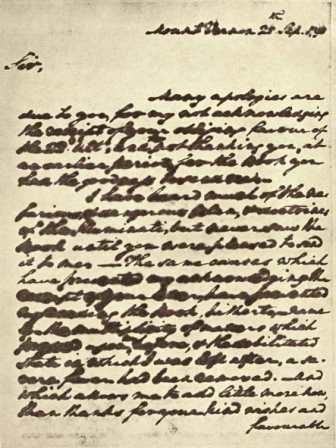 Mount Vernon 25th Sep. 1798
Sir,
Many apologies are
due to you, for my not acknowledging
the receipt of your obliging favour of
the 22d. Ult, and for not thanking you, at
an earlier period, for the Book you
had the goodness to send me.
I have heard much of the ne
farious, & dangerous plan, & doctrines
of the Illuminati, but never saw the
Book until you were pleased to send
it to me. — The same causes which
have prevented my acknowledging the
receipt of your letter, have prevented
my reading the Book, hitherto; namely
the multiplicity of matters which
pressed upon me before, & the debilitated
state in which I was left after, a se-
vere fever had been removed. And
which allows me to add little more now,
than thanks for your kind wishes and
favourable